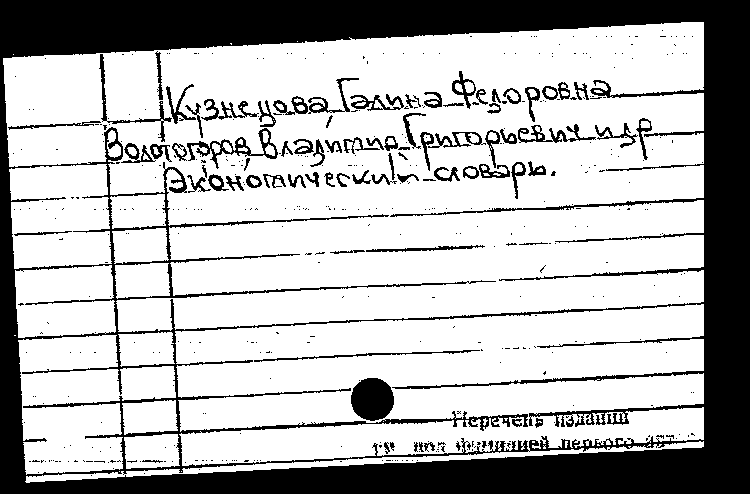 Кузнецова, Галина Федоровна
Золотогоров, Владимир Григорьевич и др
Экономический словарь.
Перечень изданий
под фамилией первого авт